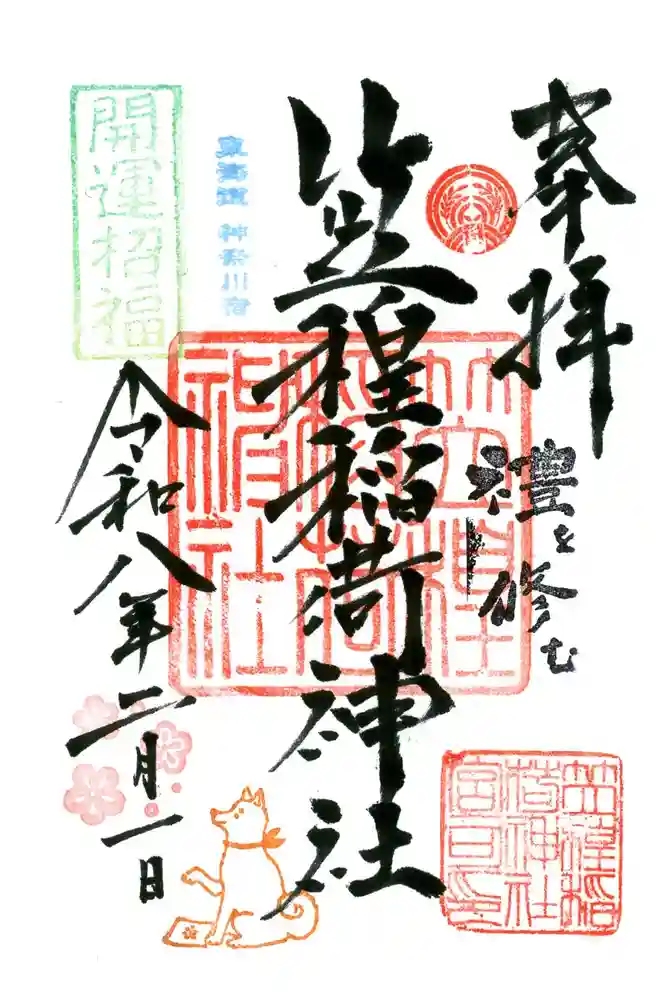 奉拝
禮を修む
笠䅣稲荷神社
東海道 神奈川宿
開運招福
令和八年二月一日
笠䅣稲荷神社
笠䅣稲荷神社宮司之印